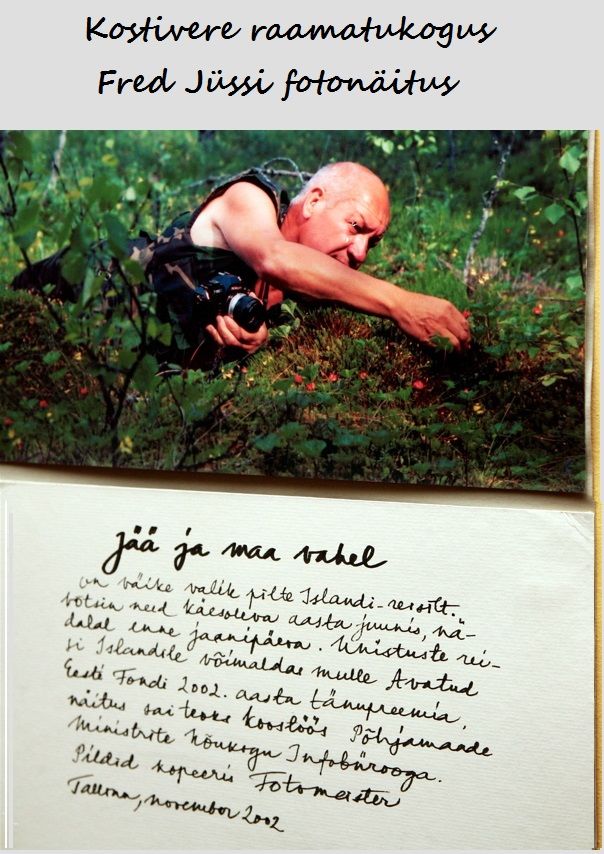 Kostivere raamatukogus
Fred Jüssi fotonäitus
Jää ja maa vahel
on väike valik pilte Islandi-reisilt.
Võtsin need käesoleva aasta juunis, nä-
dalal enne jaanipäeva. Unistuste rei-
si Islandile võimaldas mulle Avatud
Eesti Fondi 2002. aasta tänupreemia.
Näitus sai teoks koostöös Põhjamaade
Ministrite Nõukogu Infobürooga.
Pildid kopeeris Fotomeister
Tallinn, november 2002